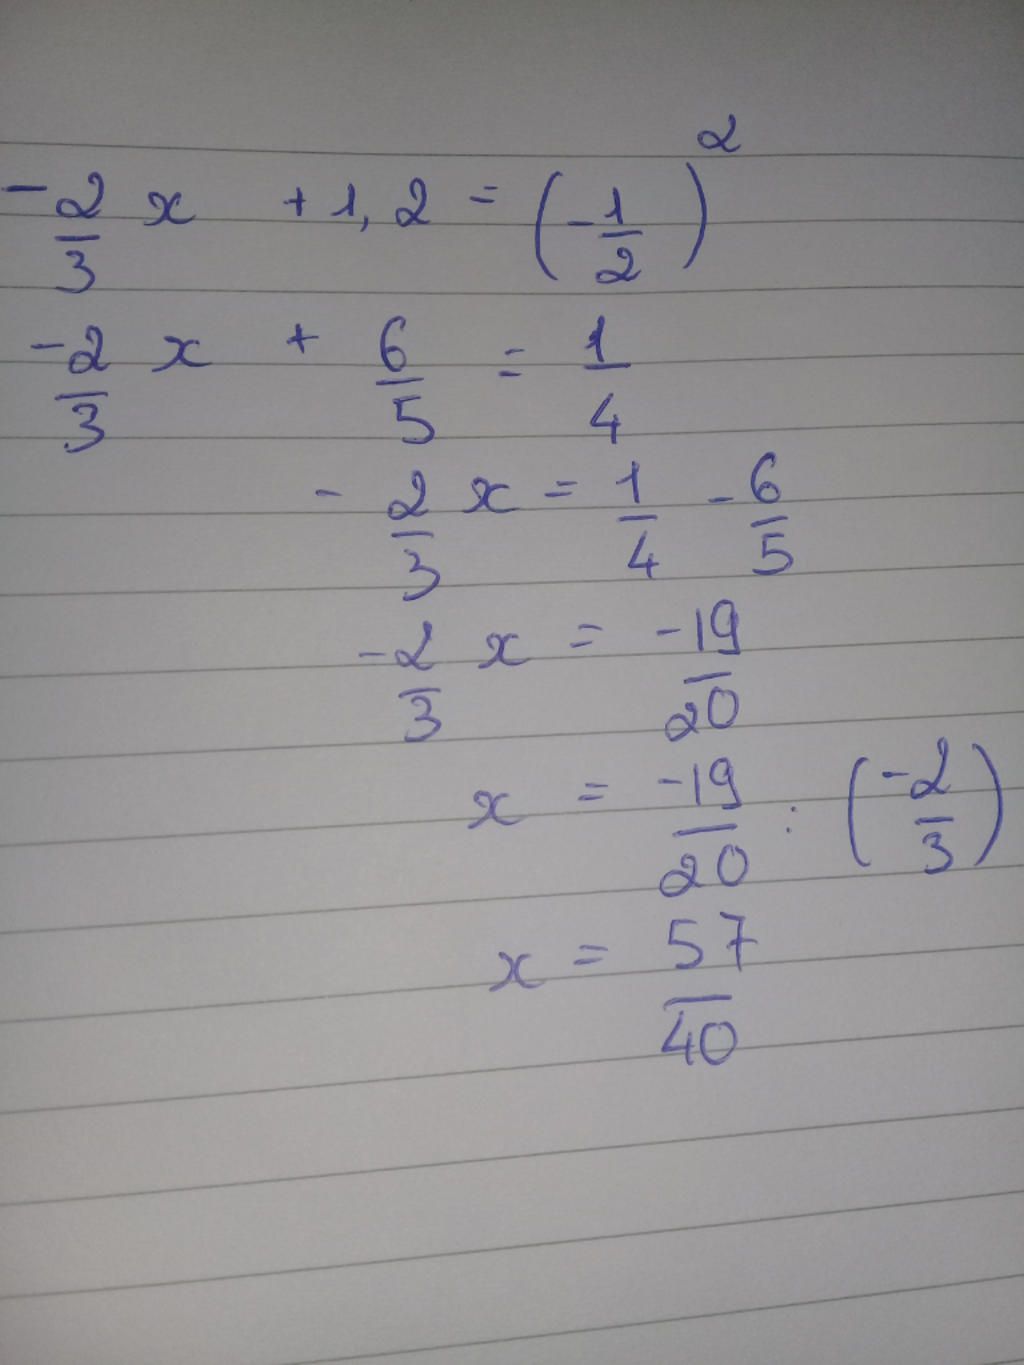 -2/3 x + 1,2 = (-1/2)²
-2/3 x + 6/5 = 1/4
- 2/3 x = 1/4 - 6/5
-2/3 x = -19/20
x = -19/20 : (-2/3)
x = 57/40